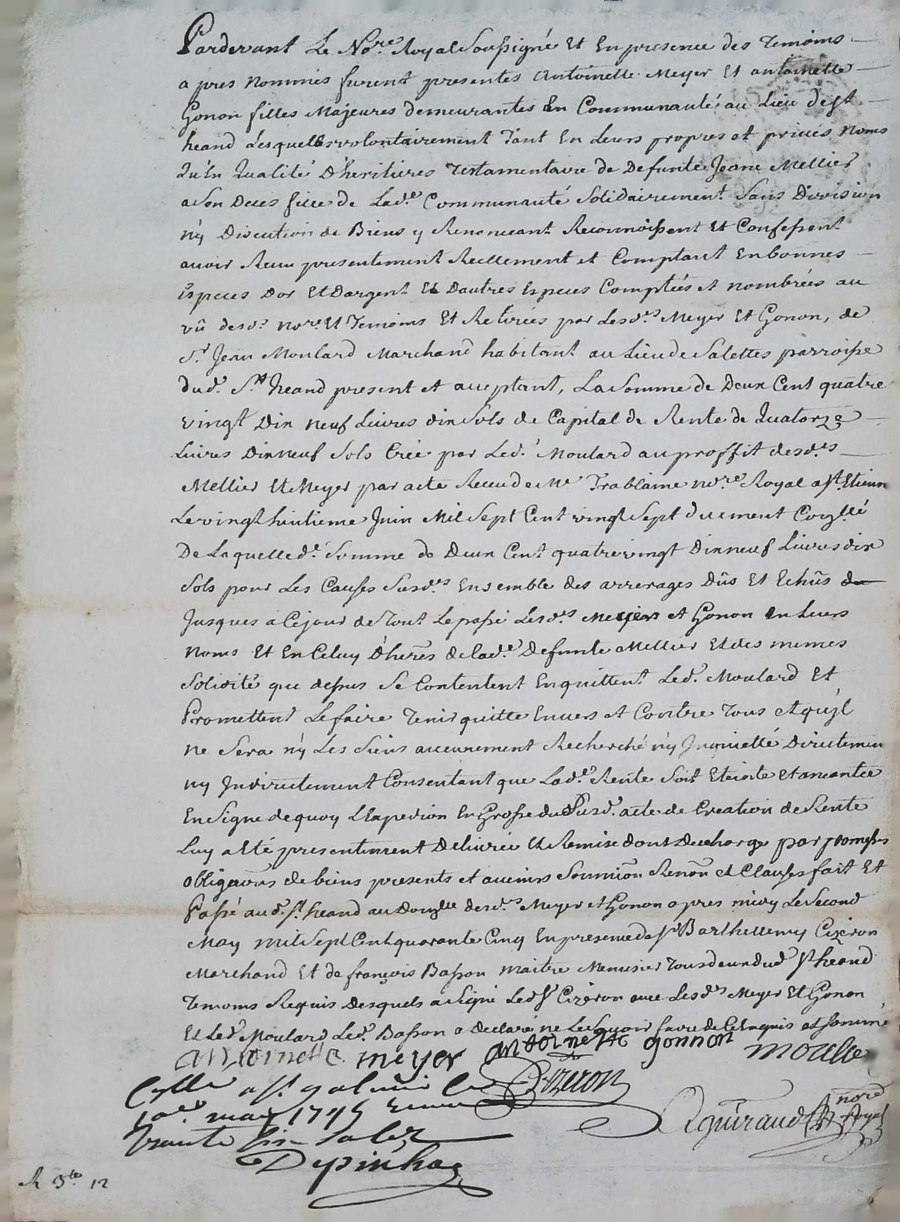 Pardevant Le No.re Royal Soussigné Et En presence des Temoins
apres Nommés furent presentes Antoinette Meyer Et antoinette
Gonon filles Majeures demeurantes En Communauté au Lieu de St
heand Lesquelles volontairement Tant En Leurs propres et privés Noms
Qu'En Qualité D'heritieres Testamentaire de Defunte Jeane Mellier
a Son Deces fille de Lad.e Communauté Solidairement Sans Division
n'y Discution de Biens y Renonceant Reconnoissent Et Confessent
avoir Receu presentement Reellement et Comptant En bonnes
Especes Dor Et Dargent Et Dautres Especes Comptées et nombrées au
vû desd.s nor.e Et Temoins Et Retirées par Lesd.es Meyer Et Gonon, de
S.r Jean Moulard Marchand habitant au Lieu de Salettes parroisse
dud. St heand present et acceptant, La Somme de Deux Cent quatre
vingt Dix Neuf Livres dix Sols de Capital de Rente de Quatorze
Livres Dixneuf Sols Créé par Led. Moulard au proffit desd.es
Mellier Et Meyer par acte Receu de Me Trablaine no.re Royal a St Etienne
Le vingt huitieme Juin Mil Sept Cent vingt Sept duement Coñllé
De Laquelle d. Somme de Deux Cent quatre vingt Dixneuf Livres dix
Sols pour Les Causes Susd.es Ensemble des arrerages Dûs Et Echûs
Jusques a Cejour de Tout Le passé Lesd.es Meyer et Gonon En Leurs
Noms Et En Celuy D'heres de Lad.e Defunte Mellier Et des mêmes
Solidité que dessus Se Contentent En quittent Led. Moulard Et
Promettent Le faire Tenir quitte Envers et Contre Tous Et qu'jl
ne Sera n'y Les Siens aucunement Recherché n'y Jnquietté Directement
ny Jndirectement Consentant que Lad.e Rente Soit Eteinte Et aneantie
En Signe de quoy L'Expedion En Grosse du Susd. acte de Creation de Rente
Luy a Eté presentement Delivrée Et Remise dont Decharge par promesses
obligaõns de biens presents et avenirs Soumiõn Renõn et Clauses fait Et
Passé aud. St heand au Domlle desd.es Meyer et Gonon apres midy Le Second
May Mil Sept Cent quarante Cinq En presence de Sr Barthellemy Cizeron
Marchand Et de françois Basson Maitre Menusier Tous deux dud St heand
Temoins Requis Desquels a Signé Led. Sr Cizeron avec Lesd.es Meyer Et Gonon
Et Led. Moulard Led. Basson a declaré ne Le Scavoir faire de Ce Enquis et Sommé
antoinette meyer antoinette gonnon moulle
Cizeron
Collé a St galmier le
may 1745 Receu
trente Six Solz
Depinhac
Aguiraud nore Royal